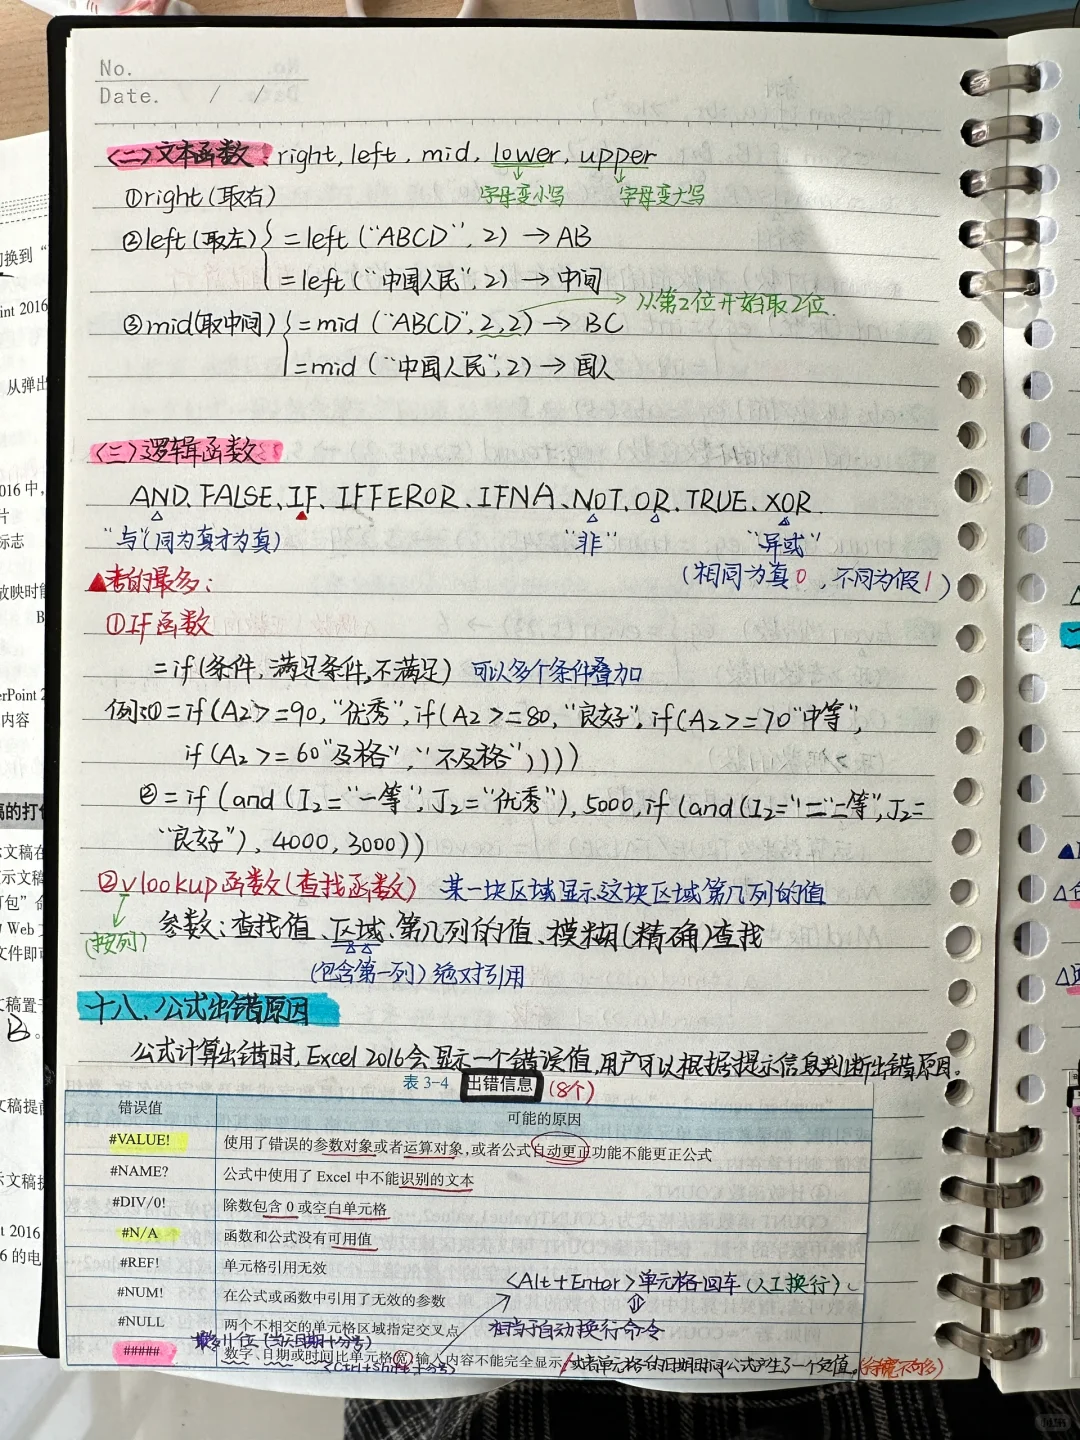 No.
Date. / /
(二)文本函数: right, left, mid, lower, upper
字母变小写 字母变大写
①right(取右)
②left(取左) =left("ABCD", 2) → AB
=left("中国人民", 2) → 中间
从第2位开始取2位.
③mid(取中间) =mid("ABCD", 2, 2) → BC
=mid("中国人民", 2) → 国人
(三)逻辑函数
AND、FALSE、IF、IFFEROR、IFNA、NOT、OR、TRUE、XOR.
"与"(同为真才为真) "非" "异或"
(相同为真0, 不同为假1)
▲考的最多:
①If函数
=if(条件, 满足条件, 不满足) 可以多个条件叠加
例:①=if(A2>=90, "优秀", if(A2>=80, "良好", if(A2>=70"中等",
if(A2>=60"及格", "不及格"))))
②=if(and(I2="一等", J2="优秀"), 5000, if(and(I2="二等", J2=
"良好"), 4000, 3000))
②vlookup函数(查找函数) 某一块区域显示这块区域第几列的值
(按列) 参数: 查找值、区域、第几列的值、模糊(精确)查找
(包含第一列) 绝对引用
十八、公式出错原因
公式计算出错时, Excel 2016会显示一个错误值, 用户可以根据提示信息判断出错原因。
表 3-4 出错信息 (8个)
错误值 可能的原因
#VALUE! 使用了错误的参数对象或者运算对象,或者公式自动更正功能不能更正公式
#NAME? 公式中使用了 Excel 中不能识别的文本
#DIV/0! 除数包含 0 或空白单元格
#N/A 函数和公式没有可用值
#REF! 单元格引用无效
<Alt+Enter>单元格回车(人工换行)
#NUM! 在公式或函数中引用了无效的参数
#NULL 两个不相交的单元格区域指定交叉点
相当于自动换行命令
##### 数字、日期或时间比单元格宽,输入内容不能完全显示,或者单元格的日期时间公式产生了一个负值。